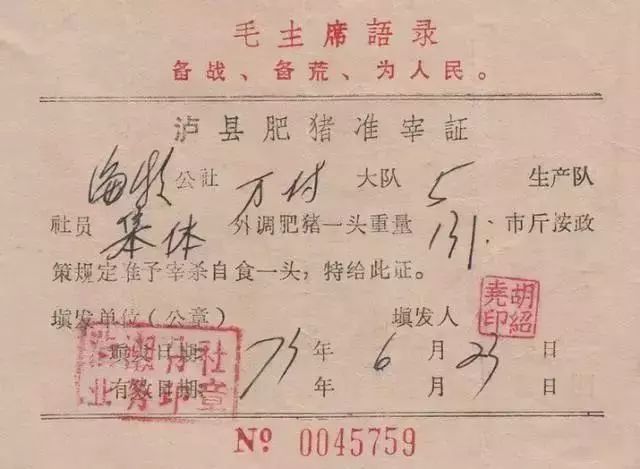 毛主席語录
备战、备荒、为人民。
泸县肥猪准宰証
海潮公社 万付 大队 5 生产队
社员 集体 外调肥猪一头重量 131 市斤按政
策规定准予宰杀自食一头，特给此证。
填发单位(公章) 填发人 胡紹尧印
填发日期: 75 年 6 月 23 日
有效日期: 年 月 日
社章
业务印
Nº 0045759